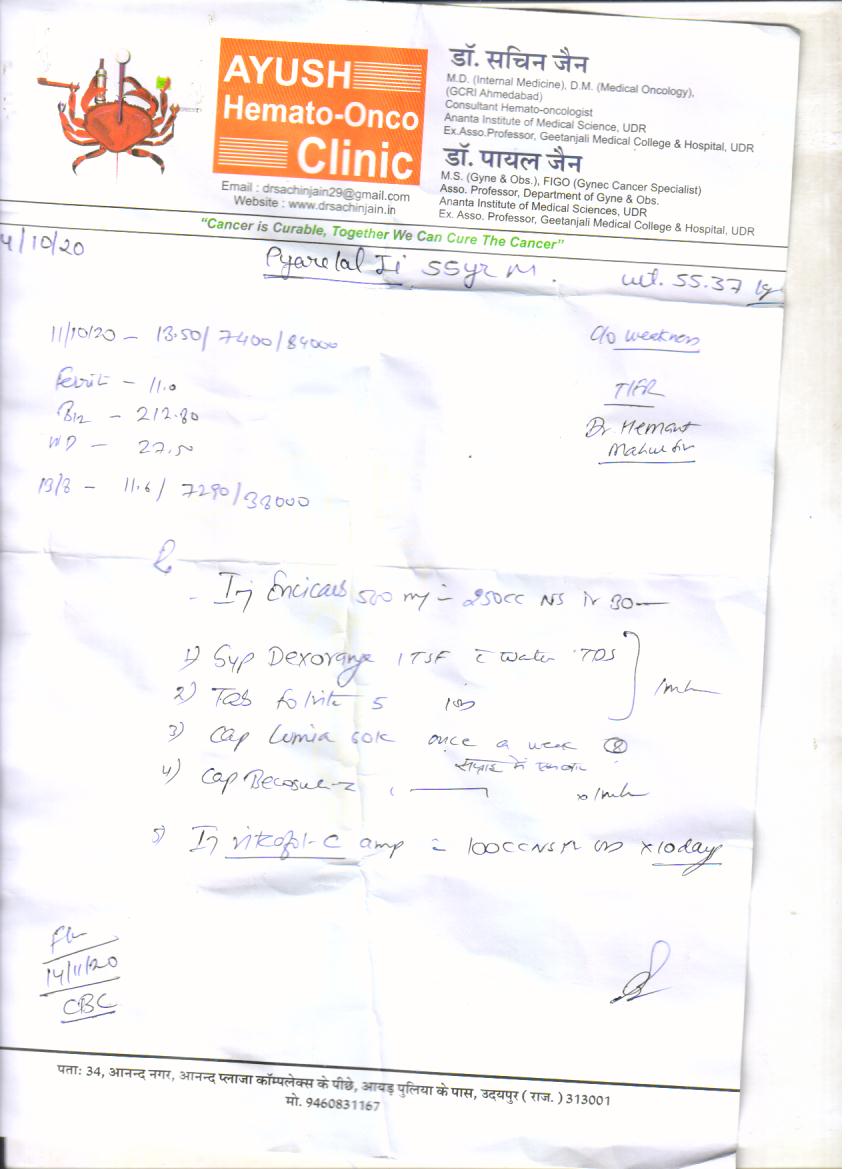 AYUSH
Hemato-Onco
Clinic
Email : drsachinjain29@gmail.com
Website : www.drsachinjain.in
डॉ. सचिन जैन
M.D. (Internal Medicine), D.M. (Medical Oncology),
(GCRI Ahmedabad)
Consultant Hemato-oncologist
Ananta Institute of Medical Science, UDR
Ex.Asso.Professor, Geetanjali Medical College & Hospital, UDR
डॉ. पायल जैन
M.S. (Gyne & Obs.), FIGO (Gynec Cancer Specialist)
Asso. Professor, Department of Gyne & Obs.
Ananta Institute of Medical Sciences, UDR
Ex. Asso. Professor, Geetanjali Medical College & Hospital, UDR
"Cancer is Curable, Together We Can Cure The Cancer"
4/10/20
Pyarelal Ji 55yr M. wt. 55.37 kg
11/10/20 - 13.50/7400/84000
c/o weakness
Ferrit - 11.0
B12 - 212.80
27.50
Dr Hemant
13/8 - 11.6/7290/38000
Inj 500 mg 250CC NS iv 30
1) Syp Dexorange 1TSF c water TDS
2) Tab folvite 5
3) Cap Lumia 60k once a week 8
सप्ताह में एक बार
4) Cap Becosule-Z x 1
5) Inj vitcofol-C amp c 100CC NS x 10 day
14/11/20
CBC
पताः 34, आनन्द नगर, आनन्द प्लाजा कॉम्पलेक्स के पीछे, आयड़ पुलिया के पास, उदयपुर ( राज. ) 313001
मो. 9460831167